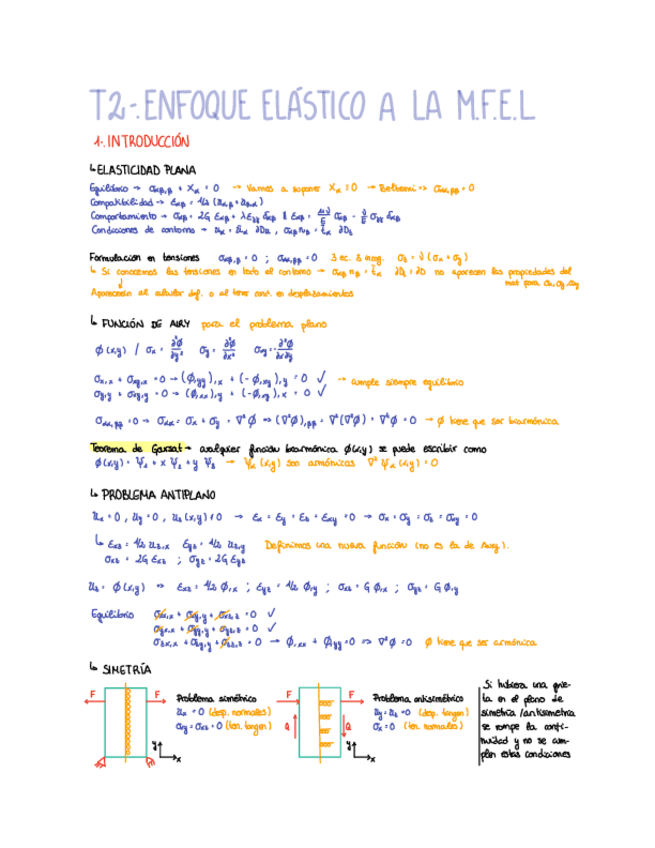 T2-. ENFOQUE ELÁSTICO A LA M.F.E.L
1-. INTRODUCCIÓN
↳ ELASTICIDAD PLANA
Equilibrio → σαβ,β + Xα = 0 → Vamos a suponer Xα = 0 → Beltrami => σαα,ββ = 0
Compatibilidad → εαβ = 1/2 (uα,β + uβ,α)
Comportamiento → σαβ = 2G εαβ + λ εγγ δαβ
Condiciones de contorno →
Formulación en tensiones σαβ,β = 0 ; σαα,ββ = 0 3 ec. 3 incog. σz = ν(σx + σy)
↳ Si conocemos las tensiones en todo el contorno → σαβ nβ = tα no aparecen las propiedades del
mat para σx, σy, σxy
Aparecerán al calcular def. o al tener cond. en desplazamientos
↳ FUNCIÓN DE AIRY para el problema plano
φ(x,y) / σx = ∂²φ/∂y² σy = ∂²φ/∂x² σxy = -∂²φ/∂x∂y
σx,x + σxy,y = 0 → (φ,yy),x + (-φ,xy),y = 0 ✓ → cumple siempre equilibrio
σy,y + σxy,x = 0 → (φ,xx),y + (-φ,xy),x = 0 ✓
σαα,ββ = 0 → σαα = σx + σy = ∇²φ => (∇²φ),ββ = ∇²(∇²φ) = ∇⁴φ = 0 → φ tiene que ser biarmónica
Teorema de Goursat → cualquier función biarmónica φ(x,y) se puede escribir como
φ(x,y) = ψ1 + x ψ2 + y ψ3 → ψα(x,y) son armónicas ∇²ψα(x,y) = 0
↳ PROBLEMA ANTIPLANO
ux = 0 , uy = 0 , uz(x,y) ≠ 0 → εx = εy = εz = εxy = 0 → σx = σy = σz = σxy = 0
↳ εxz = 1/2 uz,x εyz = 1/2 uz,y Definimos una nueva función (no es la de Airy).
σxz = 2G εxz ; σyz = 2G εyz
uz = φ(x,y) => εxz = 1/2 φ,x ; εyz = 1/2 φ,y ; σxz = G φ,x ; σyz = G φ,y
Equilibrio σx,x + σxy,y + σxz,z = 0 ✓
σyx,x + σy,y + σyz,z = 0 ✓
σzx,x + σzy,y + σz,z = 0 → φ,xx + φ,yy = 0 => ∇²φ = 0 φ tiene que ser armónica
↳ SIMETRÍA
F F
Problema simétrico
ux = 0 (desp. normales)
σxy = σxz = 0 (ten. tangen)
y x
F F
Q Q
Problema antisimétrico
uy = uz = 0 (desp. tangen)
σx = 0 (ten. normales)
y x
Si hubiera una grie-
ta en el plano de
simetría/antisimetría
se rompe la conti-
nuidad y no se cum-
plen estas condiciones